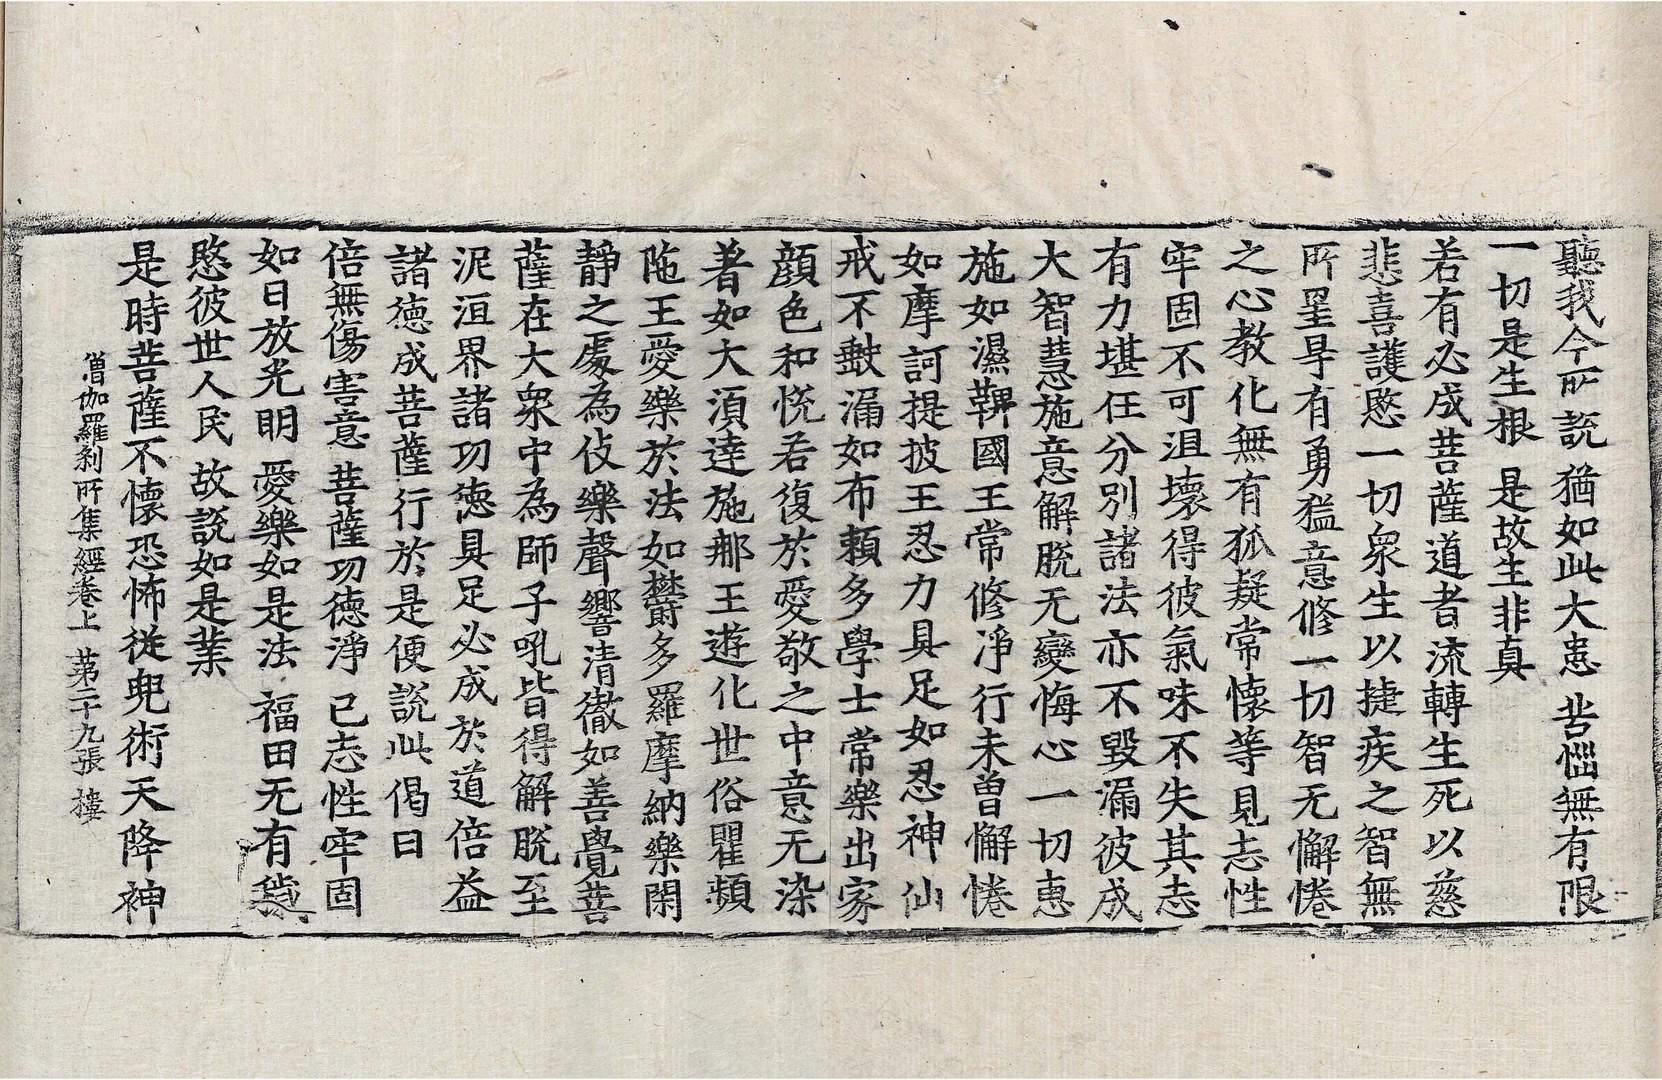 聽我今所說 猶如此大患 苦惱無有限
一切是生根 是故生非真
若有必成菩薩道者流轉生死以慈
悲喜護愍一切衆生以捷疾之智無
所罣㝵有勇猛意修一切智无懈惓
之心教化無有狐疑常懷等見志性
牢固不可沮壞得彼氣味不失其志
有力堪任分別諸法亦不毀漏彼成
大智慧施意解脫无變悔心一切惠
施如濕鞞國王常修淨行未曾懈惓
如摩訶提披王忍力具足如忍神仙
戒不缺漏如布賴多學士常樂出家
顏色和悅若復於愛敬之中意无染
著如大須達施那王遊化世俗瞿頻
陁王愛樂於法如欝多羅摩納樂閑
靜之處為伎樂聲響清徹如善覺菩
薩在大衆中為師子吼皆得解脫至
泥洹界諸功德具足必成於道倍益
諸德成菩薩行於是便說此偈曰
倍無傷害意 菩薩功德淨 已志性牢固
如日放光明 愛樂如是法 福田无有穢
愍彼世人民 故說如是業
是時菩薩不懷恐怖從兜術天降神
僧伽羅剎所集經卷上 第二十九張 樓